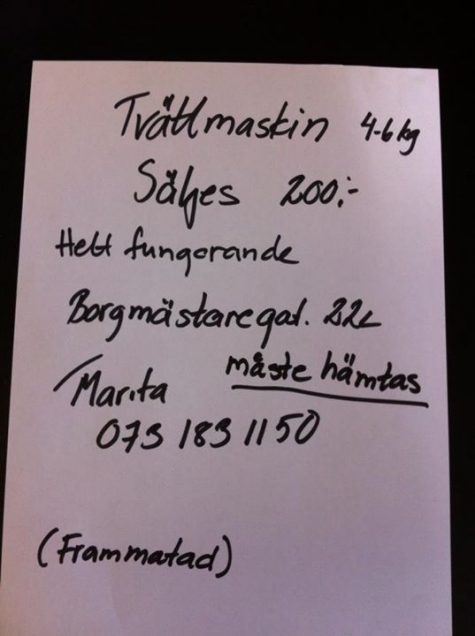 Tvättmaskin 4-6 kg
Säljes 200:-
Helt fungerande
Borgmästaregat. 22c
måste hämtas
/Marita
073 183 1150
(Frammatad)